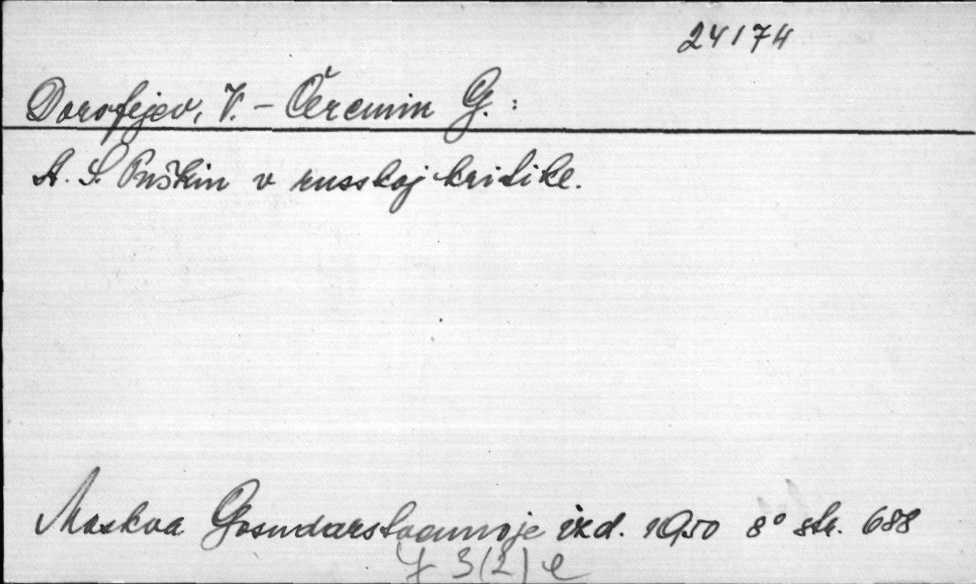 24174
Dorofejev, V. – Čeremin G. :
A. S. Puškin v russkoj kritike.
Moskva Gosudarstvennoje izd. 1950 8° str. 688
3(2) e